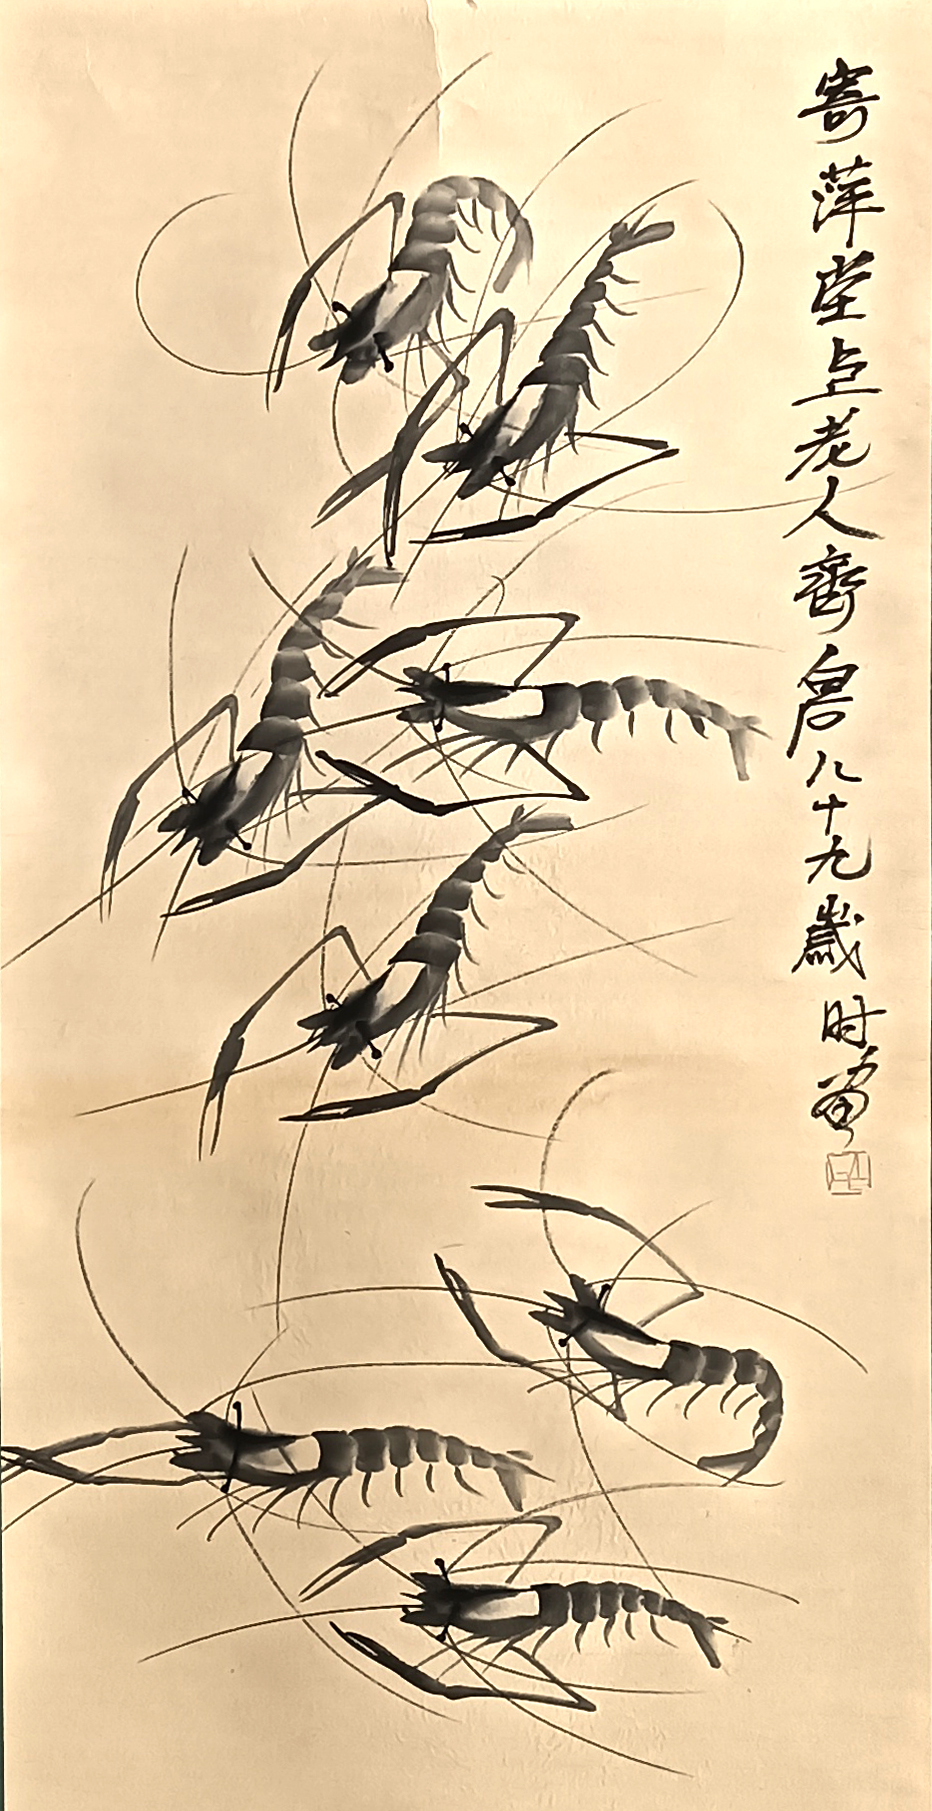 寄萍堂上老人齊白石八十九歲时當